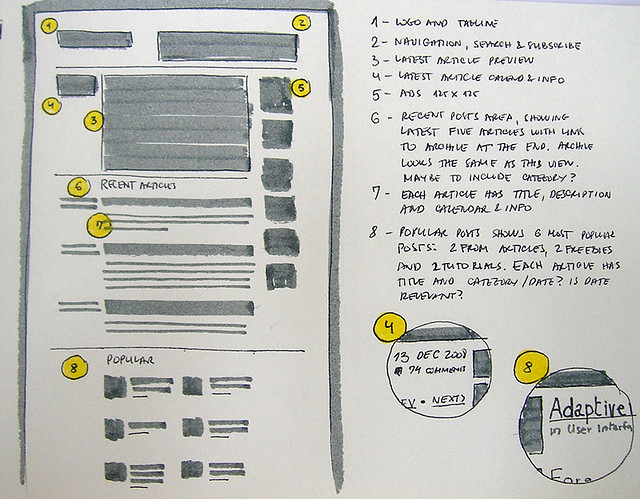 1
2
3
4
5
6
RECENT ARTICLES
7
8
POPULAR
1 - LOGO AND TAGLINE
2 - NAVIGATION, SEARCH & SUBSCRIBE
3 - LATEST ARTICLE PREVIEW
4 - LATEST ARTICLE CALEND & INFO
5 - ADS 125 X 125
6 - RECENT POSTS AREA, SHOWING
LATEST FIVE ARTICLES WITH LINK
TO ARCHIVE AT THE END. ARCHIVE
LOOKS THE SAME AS THIS VIEW.
MAYBE TO INCLUDE CATEGORY?
7 - EACH ARTICLE HAS TITLE, DESCRIPTION
AND CALENDAR & INFO
8 - POPULAR POSTS SHOWS 6 MOST POPULAR
POSTS: 2 FROM ARTICLES, 2 FREEBIES
AND 2 TUTORIALS. EACH ARTICLE HAS
TITLE AND CATEGORY/DATE? IS DATE
RELEVANT?
4
13 DEC 2008
74 COMMENTS
EV • NEXT>
8
Adaptive
in User Interfa